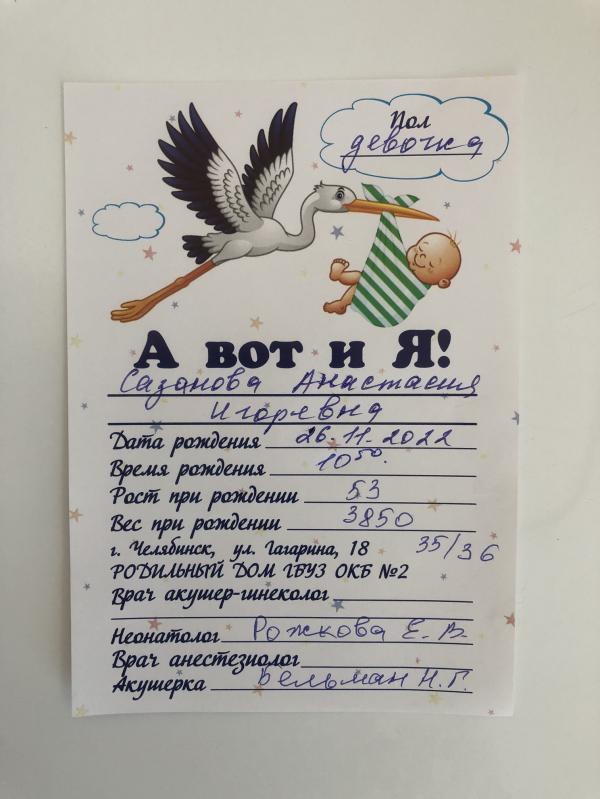 Пол
девочка
А вот и Я!
Сазонова Анастасия
Игоревна
Дата рождения 26.11.2022
Время рождения 10 50.
Рост при рождении 53
Вес при рождении 3850
г. Челябинск, ул. Гагарина, 18 35/36
РОДИЛЬНЫЙ ДОМ ГБУЗ ОКБ №2
Врач акушер-гинеколог
Неонатолог Рожкова Е. В.
Врач анестезиолог
Акушерка Вельман Н. Г.